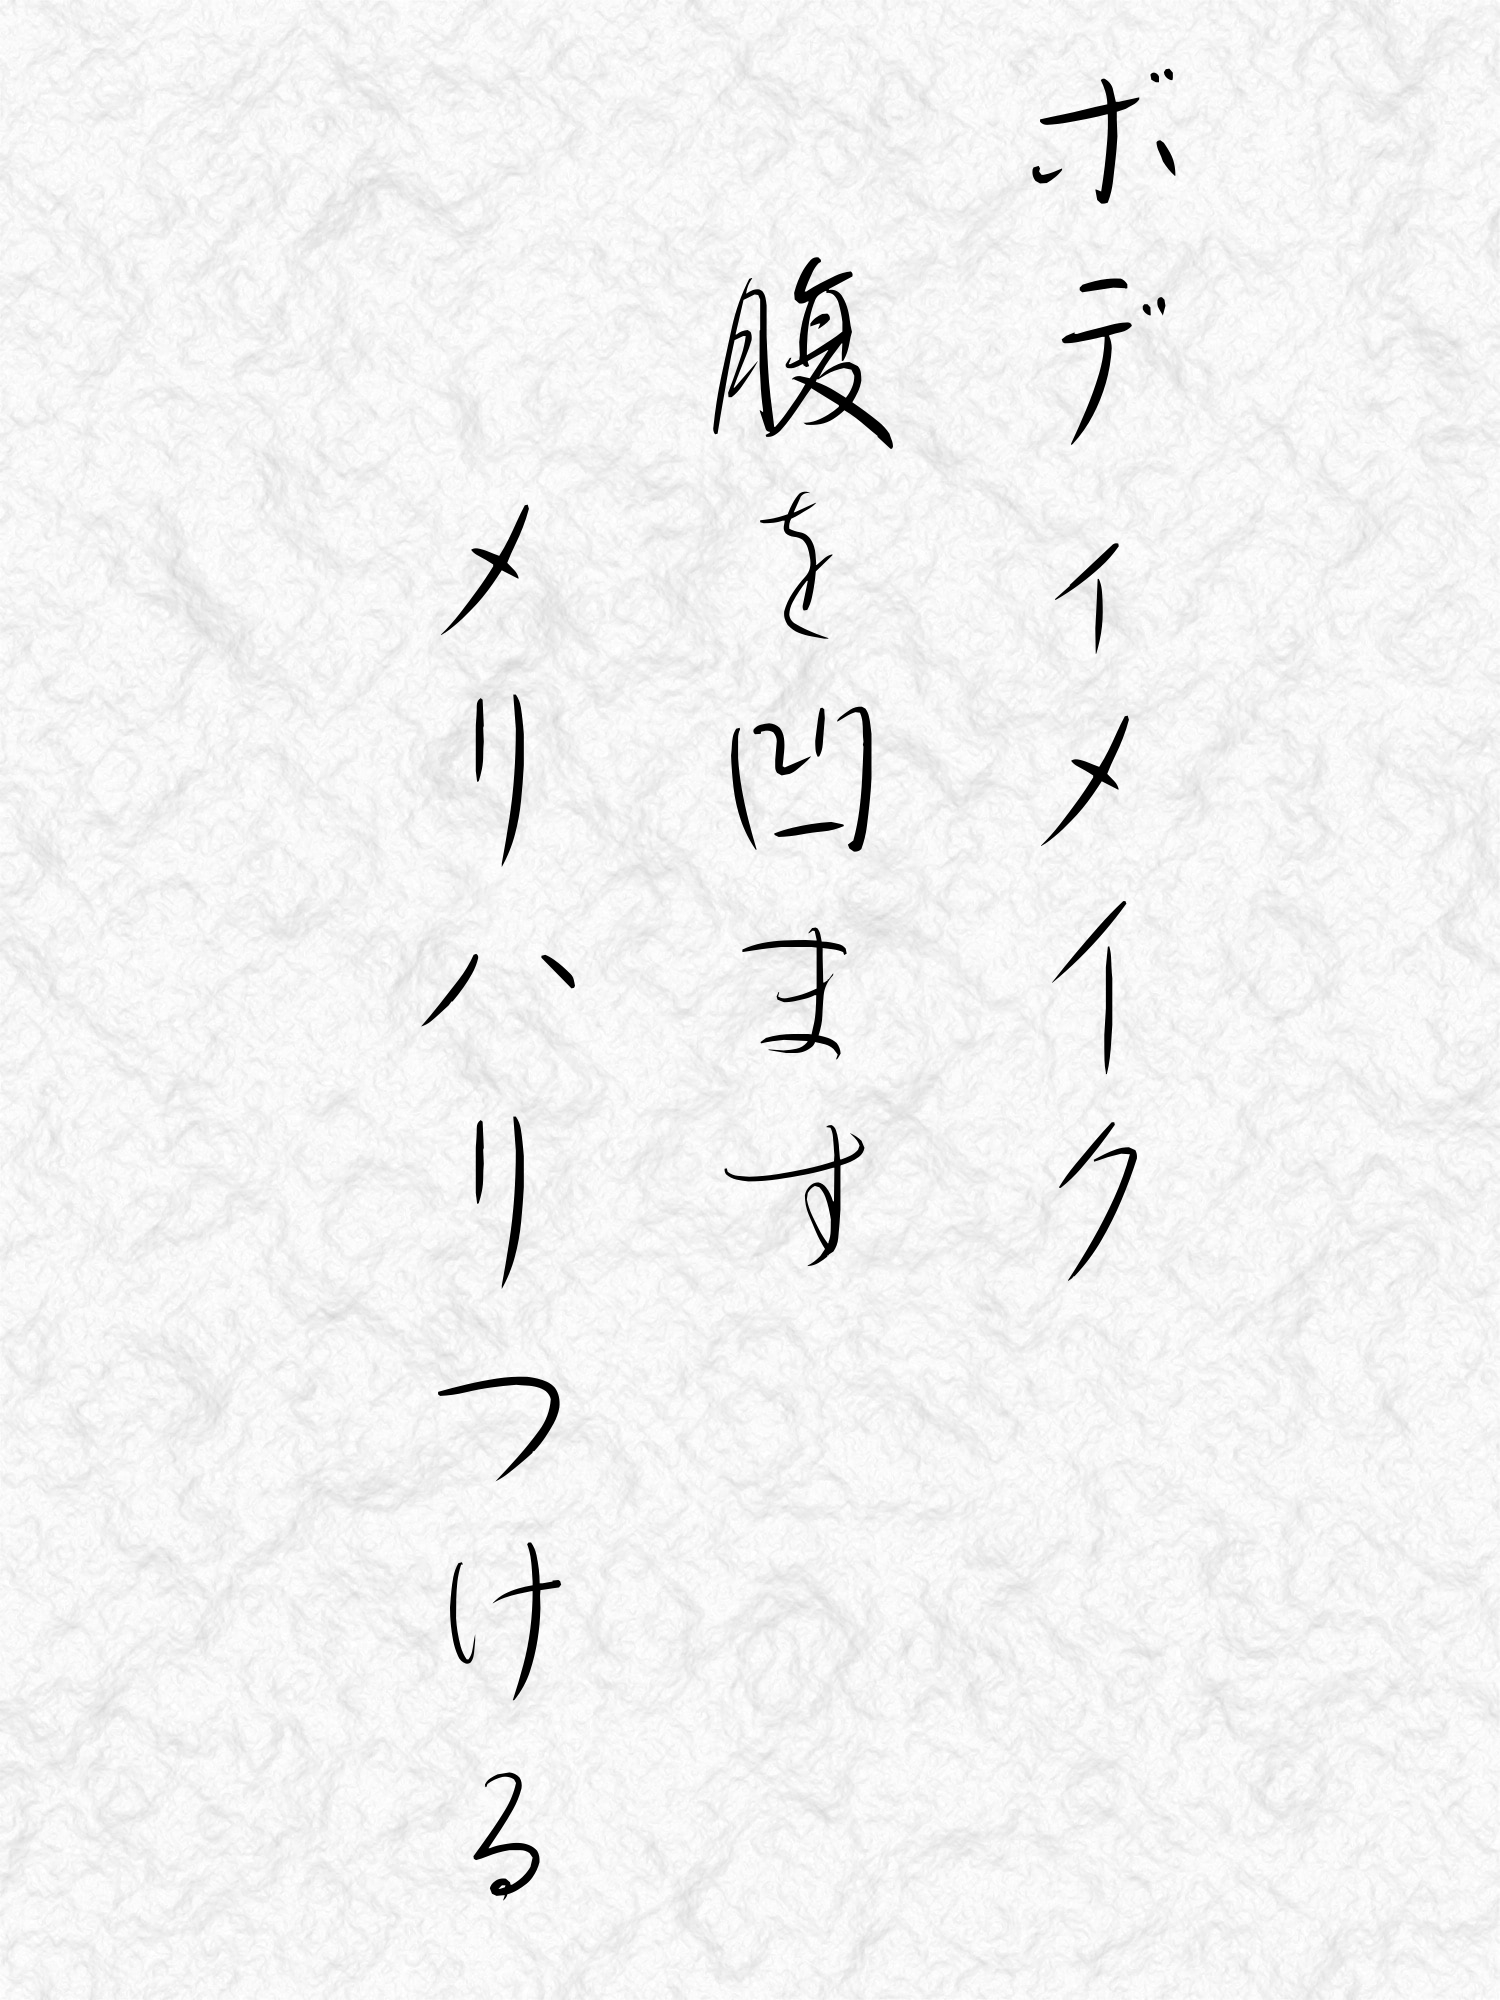 ボディメイク
腹を凹ます
メリハリつける